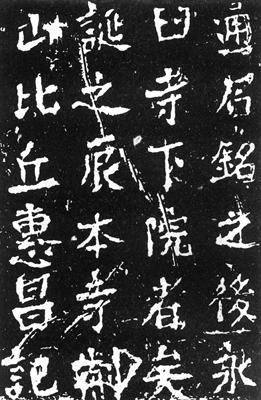 通銘之後永
曰寺下院者矣
誕之辰本寺
山比丘惠昌記